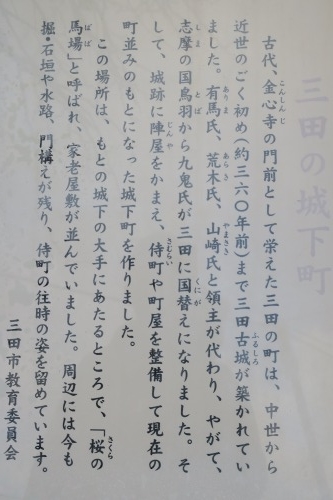 三田の城下町
古代、金心寺の門前として栄えた三田の町は、中世から
近世のごく初め(約三六〇年前)まで三田古城が築かれてい
ました。有馬氏、荒木氏、山崎氏と領主が代わり、やがて、
志摩の国鳥羽から九鬼氏が三田に国替えになりました。そ
して、城跡に陣屋をかまえ、侍町や町屋を整備して現在の
町並みのもとになった城下町を作りました。
この場所は、もとの城下の大手にあたるところで、「桜の
馬場」と呼ばれ、家老屋敷が並んでいました。周辺には今も
堀・石垣や水路、門構えが残り、侍町の往時の姿を留めています。
三田市教育委員会